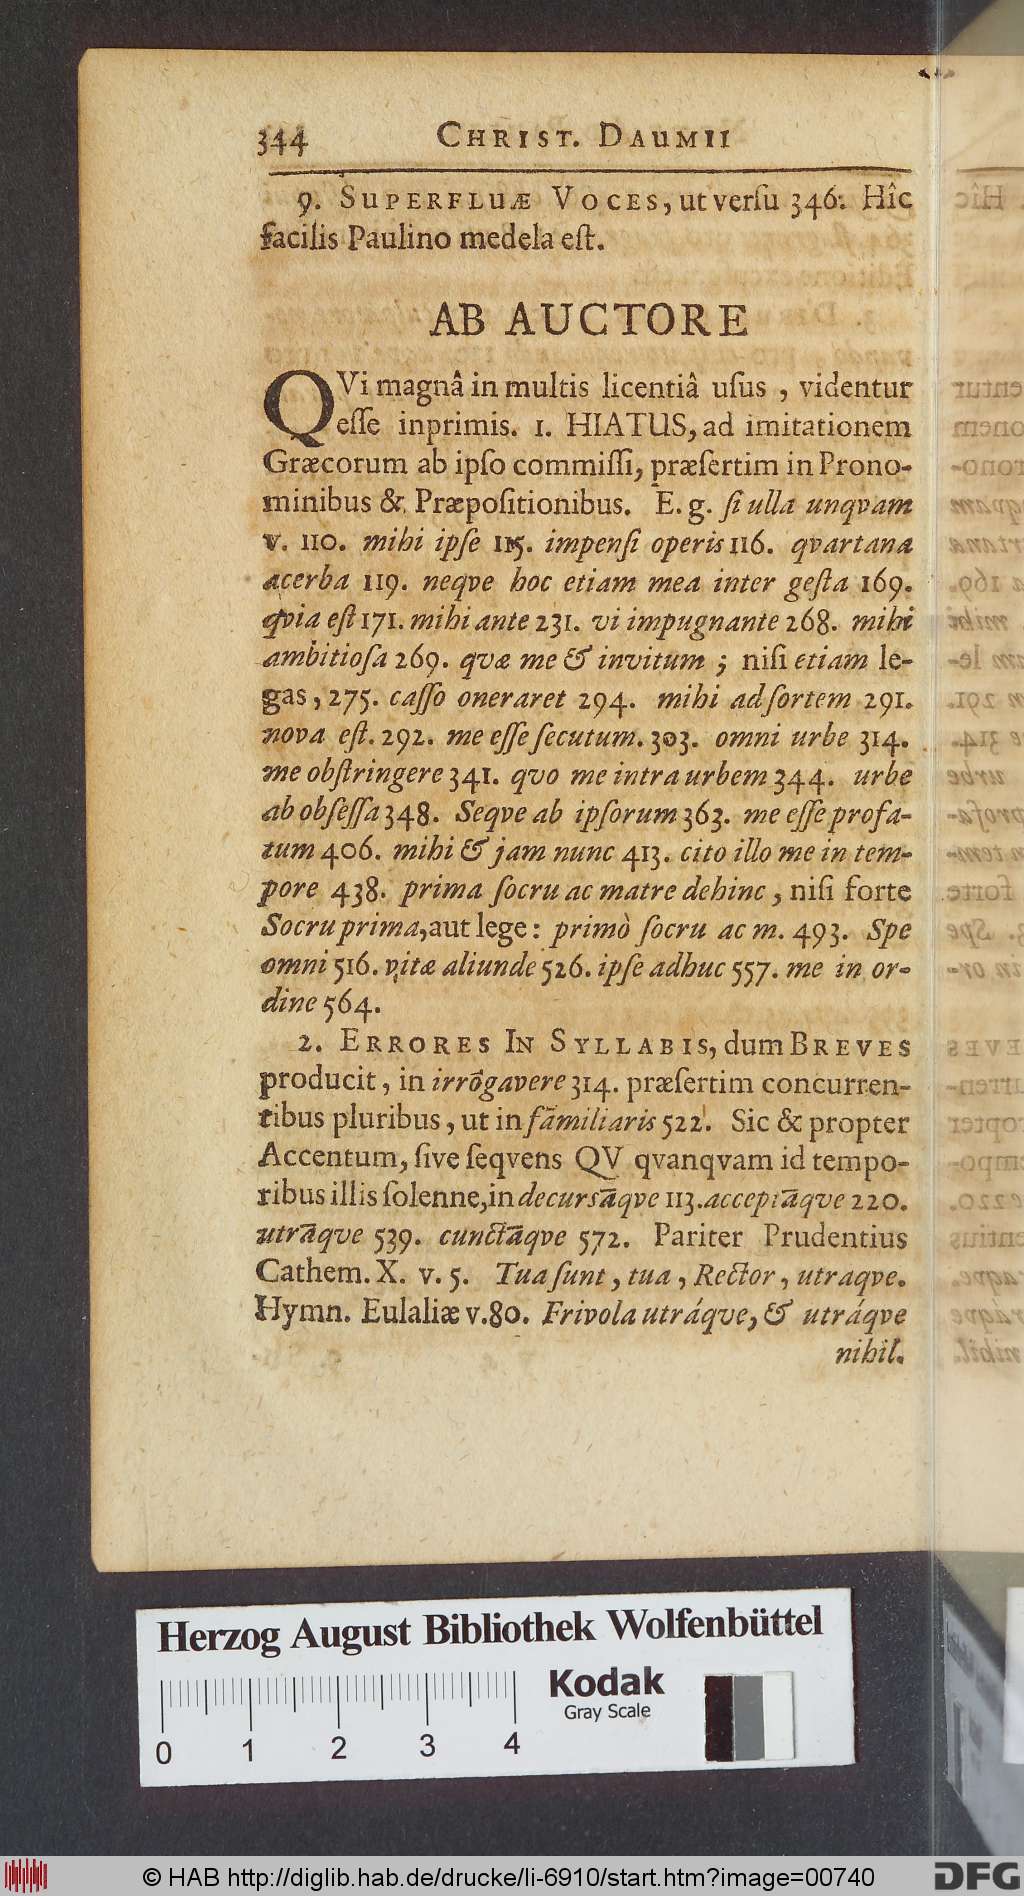 344 CHRIST. DAUMII
9. SUPERFLUÆ VOCES, ut verſu 346: Hîc
facilis Paulino medela eſt.
AB AUCTORE
QVi magnâ in multis licentiâ uſus, videntur
eſſe inprimis. 1. HIATUS, ad imitationem
Græcorum ab ipſo commiſſi, præſertim in Prono-
minibus & Præpoſitionibus. E. g. ſi ulla unqvam
v. 110. mihi ipſe 115. impenſi operis 116. qvartana
acerba 119. neqve hoc etiam mea inter geſta 169.
qvia eſt 171. mihi ante 231. vi impugnante 268. mihi
ambitioſa 269. qvæ me & invitum; niſi etiam le-
gas, 275. caſſo oneraret 294. mihi ad ſortem 291.
nova eſt. 292. me eſſe ſecutum. 303. omni urbe 314.
me obſtringere 341. qvo me intra urbem 344. urbe
ab obſeſſa 348. Seqve ab ipſorum 363. me eſſe profa-
tum 406. mihi & jam nunc 413. cito illo me in tem-
pore 438. prima ſocru ac matre dehinc, niſi forte
Socru prima, aut lege: primò ſocru ac m. 493. Spe
omni 516. vitæ aliunde 526. ipſe adhuc 557. me in or-
dine 564.
2. ERRORES IN SYLLABIS, dum BREVES
producit, in irrōgavere 314. præſertim concurren-
tibus pluribus, ut in fāmiliaris 522. Sic & propter
Accentum, ſive ſeqvens QV qvanqvam id tempo-
ribus illis ſolenne, in decursāqve 113. acceptāqve 220.
utrāqve 539. cunctāqve 572. Pariter Prudentius
Cathem. X. v. 5. Tua ſunt, tua, Rector, utraqve.
Hymn. Eulaliæ v. 80. Frivola utráqve, & utráqve
nihil.
Herzog August Bibliothek Wolfenbüttel
Kodak
Gray Scale
0 1 2 3 4
© HAB http://diglib.hab.de/drucke/li-6910/start.htm?image=00740
DFG